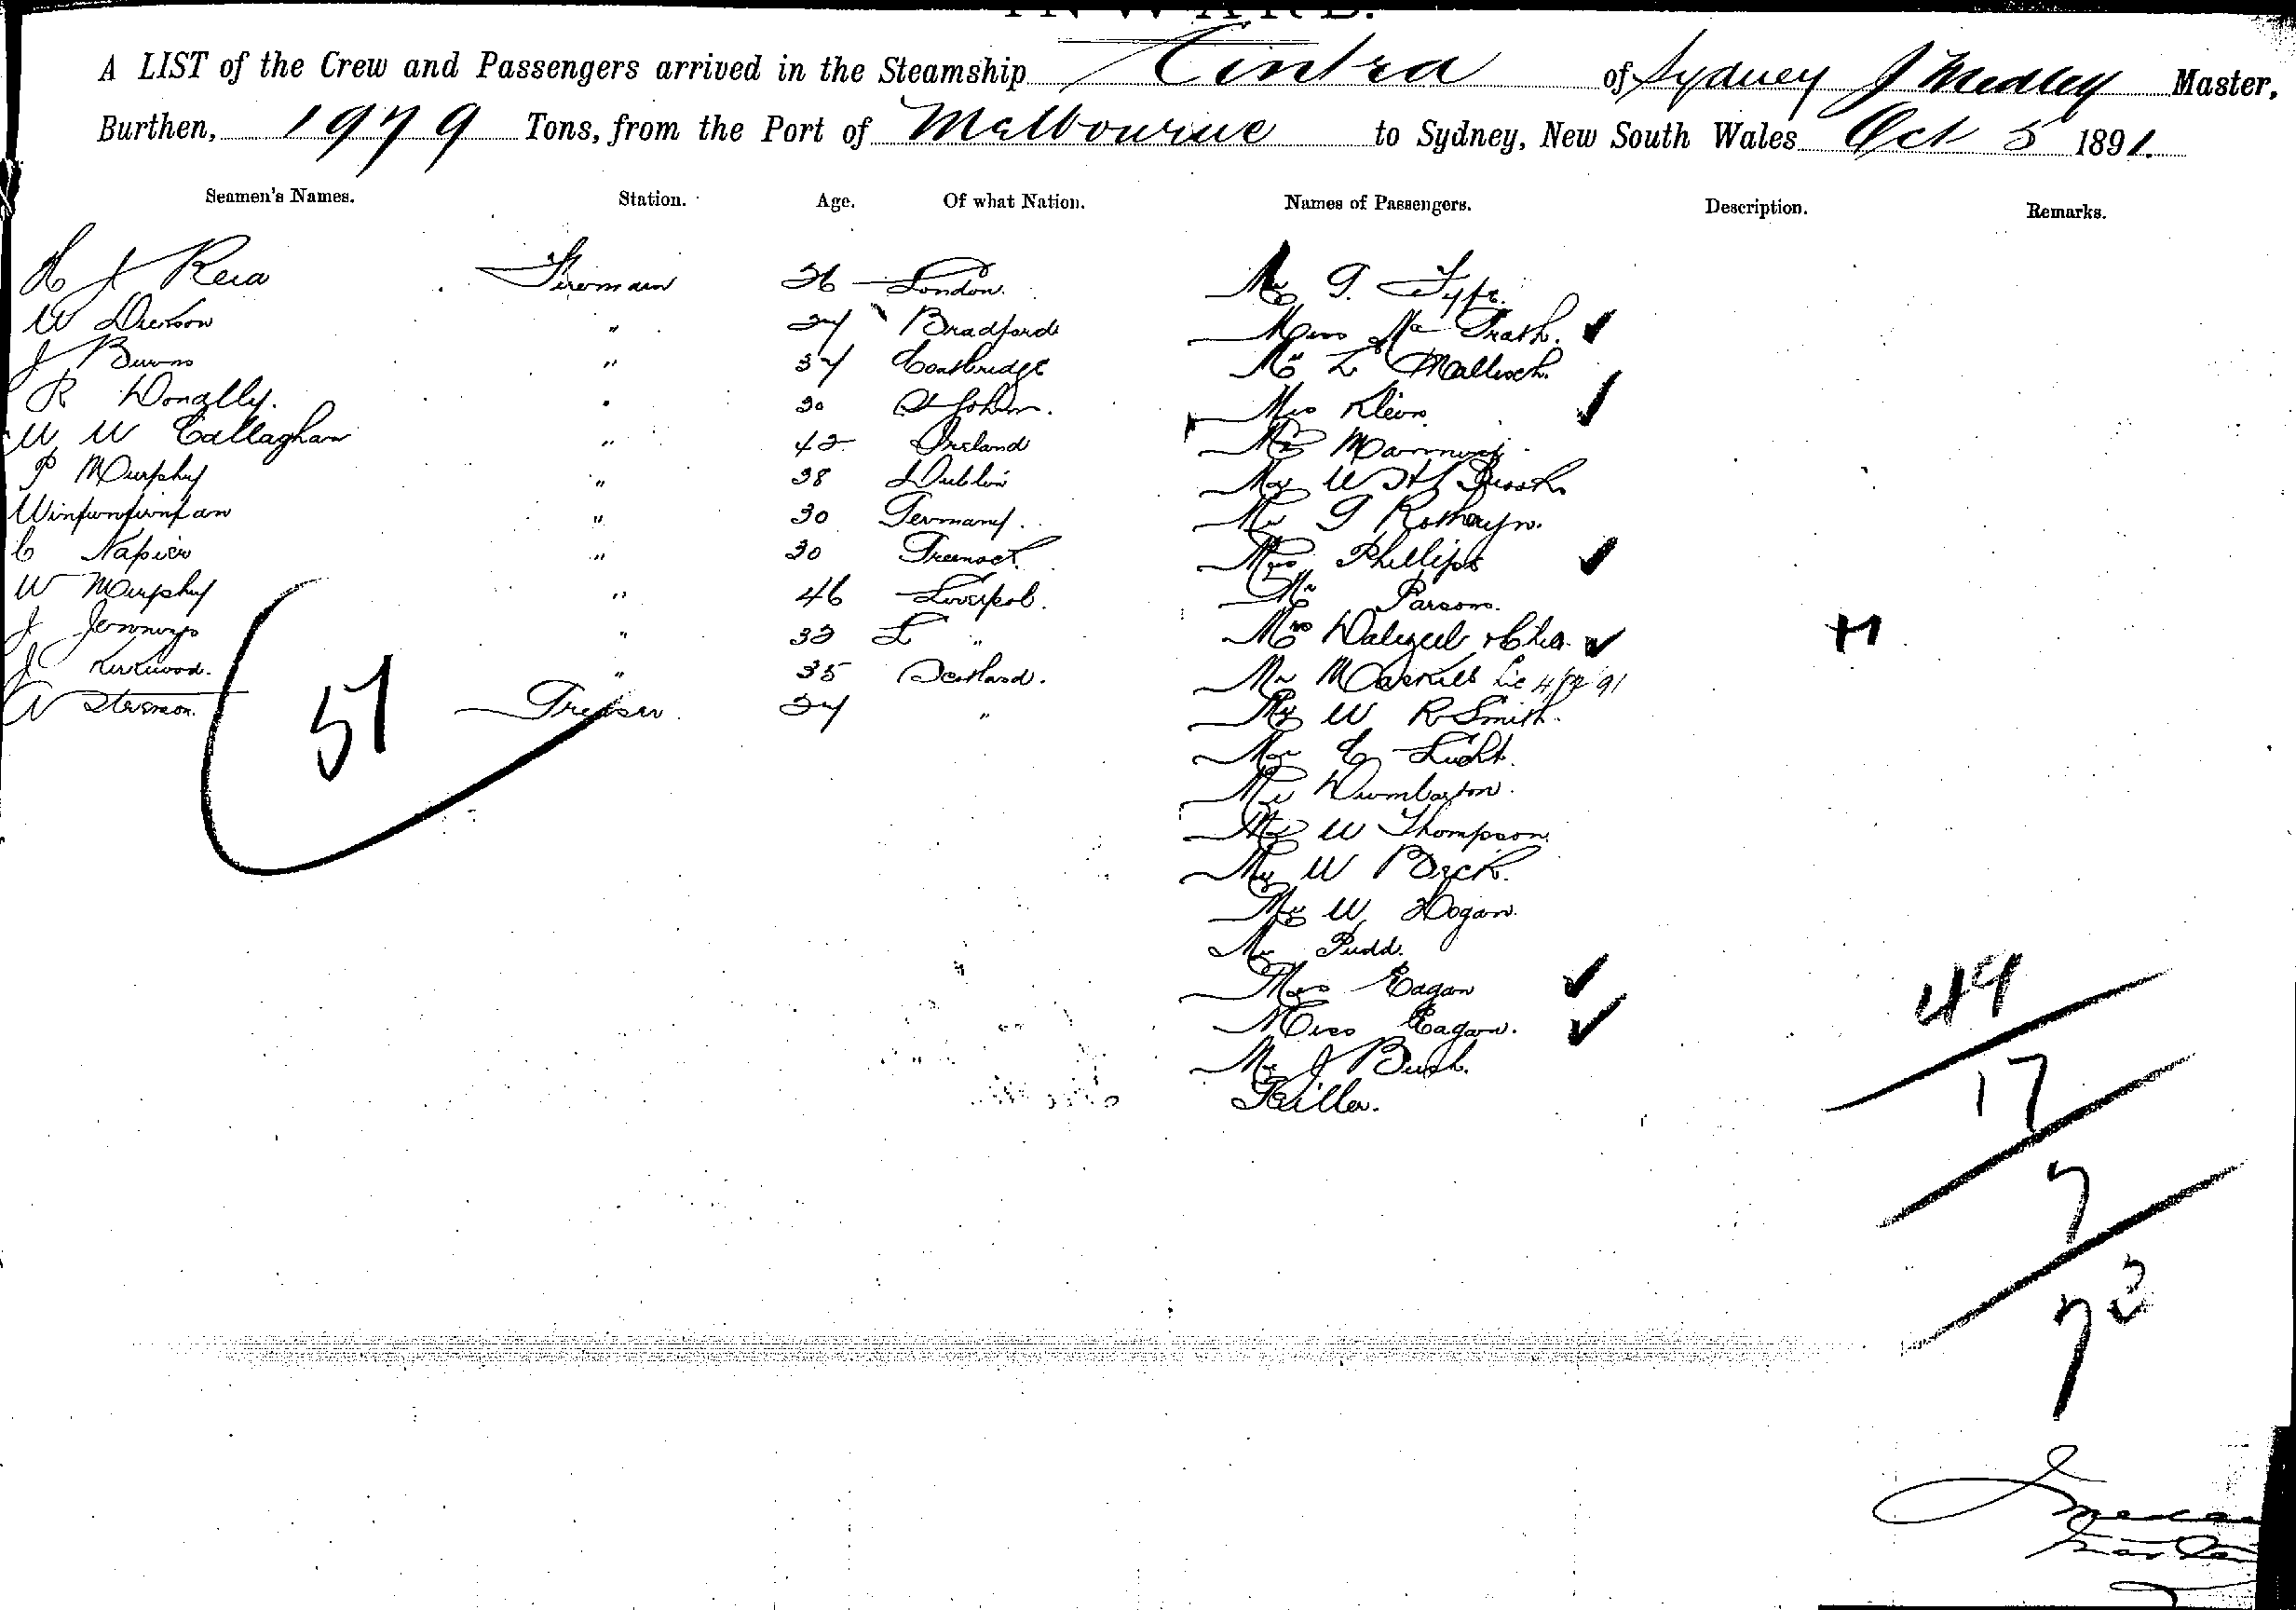 INWARD.
A LIST of the Crew and Passengers arrived in the Steamship Cintra of Sydney J Medley Master,
Burthen, 1979 Tons, from the Port of Melbourne to Sydney, New South Wales Oct 5 1891.
Seamen's Names. Station. Age. Of what Nation. Names of Passengers. Description. Remarks.
H J Reid Fireman 26 London. Mr G. Fyfe.
W Dickson " 24 Bradford Miss McGrath. ✓
J Burns " 34 Coatbridge Mr L Malloch.
R Donally. " 30 St John. Mrs Klein ✓
W Callaghan " 42 Ireland Mr
P Murphy " 38 Dublin Mr W H
" 30 Germany. Mr G
C Napier " 30 Greenock. Mrs Phillips ✓
W Murphy " 46 Liverpool. Mr Parsons.
J Jennings " 32 L " Mrs Dalziel & Chd. ✓ H
J Kirkwood. " 35 Scotland. Mr McAskill
A Stevenson. Greaser. 24 " Mr W R Smith.
51
Mr C Licht.
Mr Dumbarton.
Mr W Thompson
Mr W Beck.
Mr W Hogan.
Mr Pudd.
Mrs Eagan ✓
Miss Eagan. ✓
Mr J Bush.
49
17
7
73
J Medley
Master